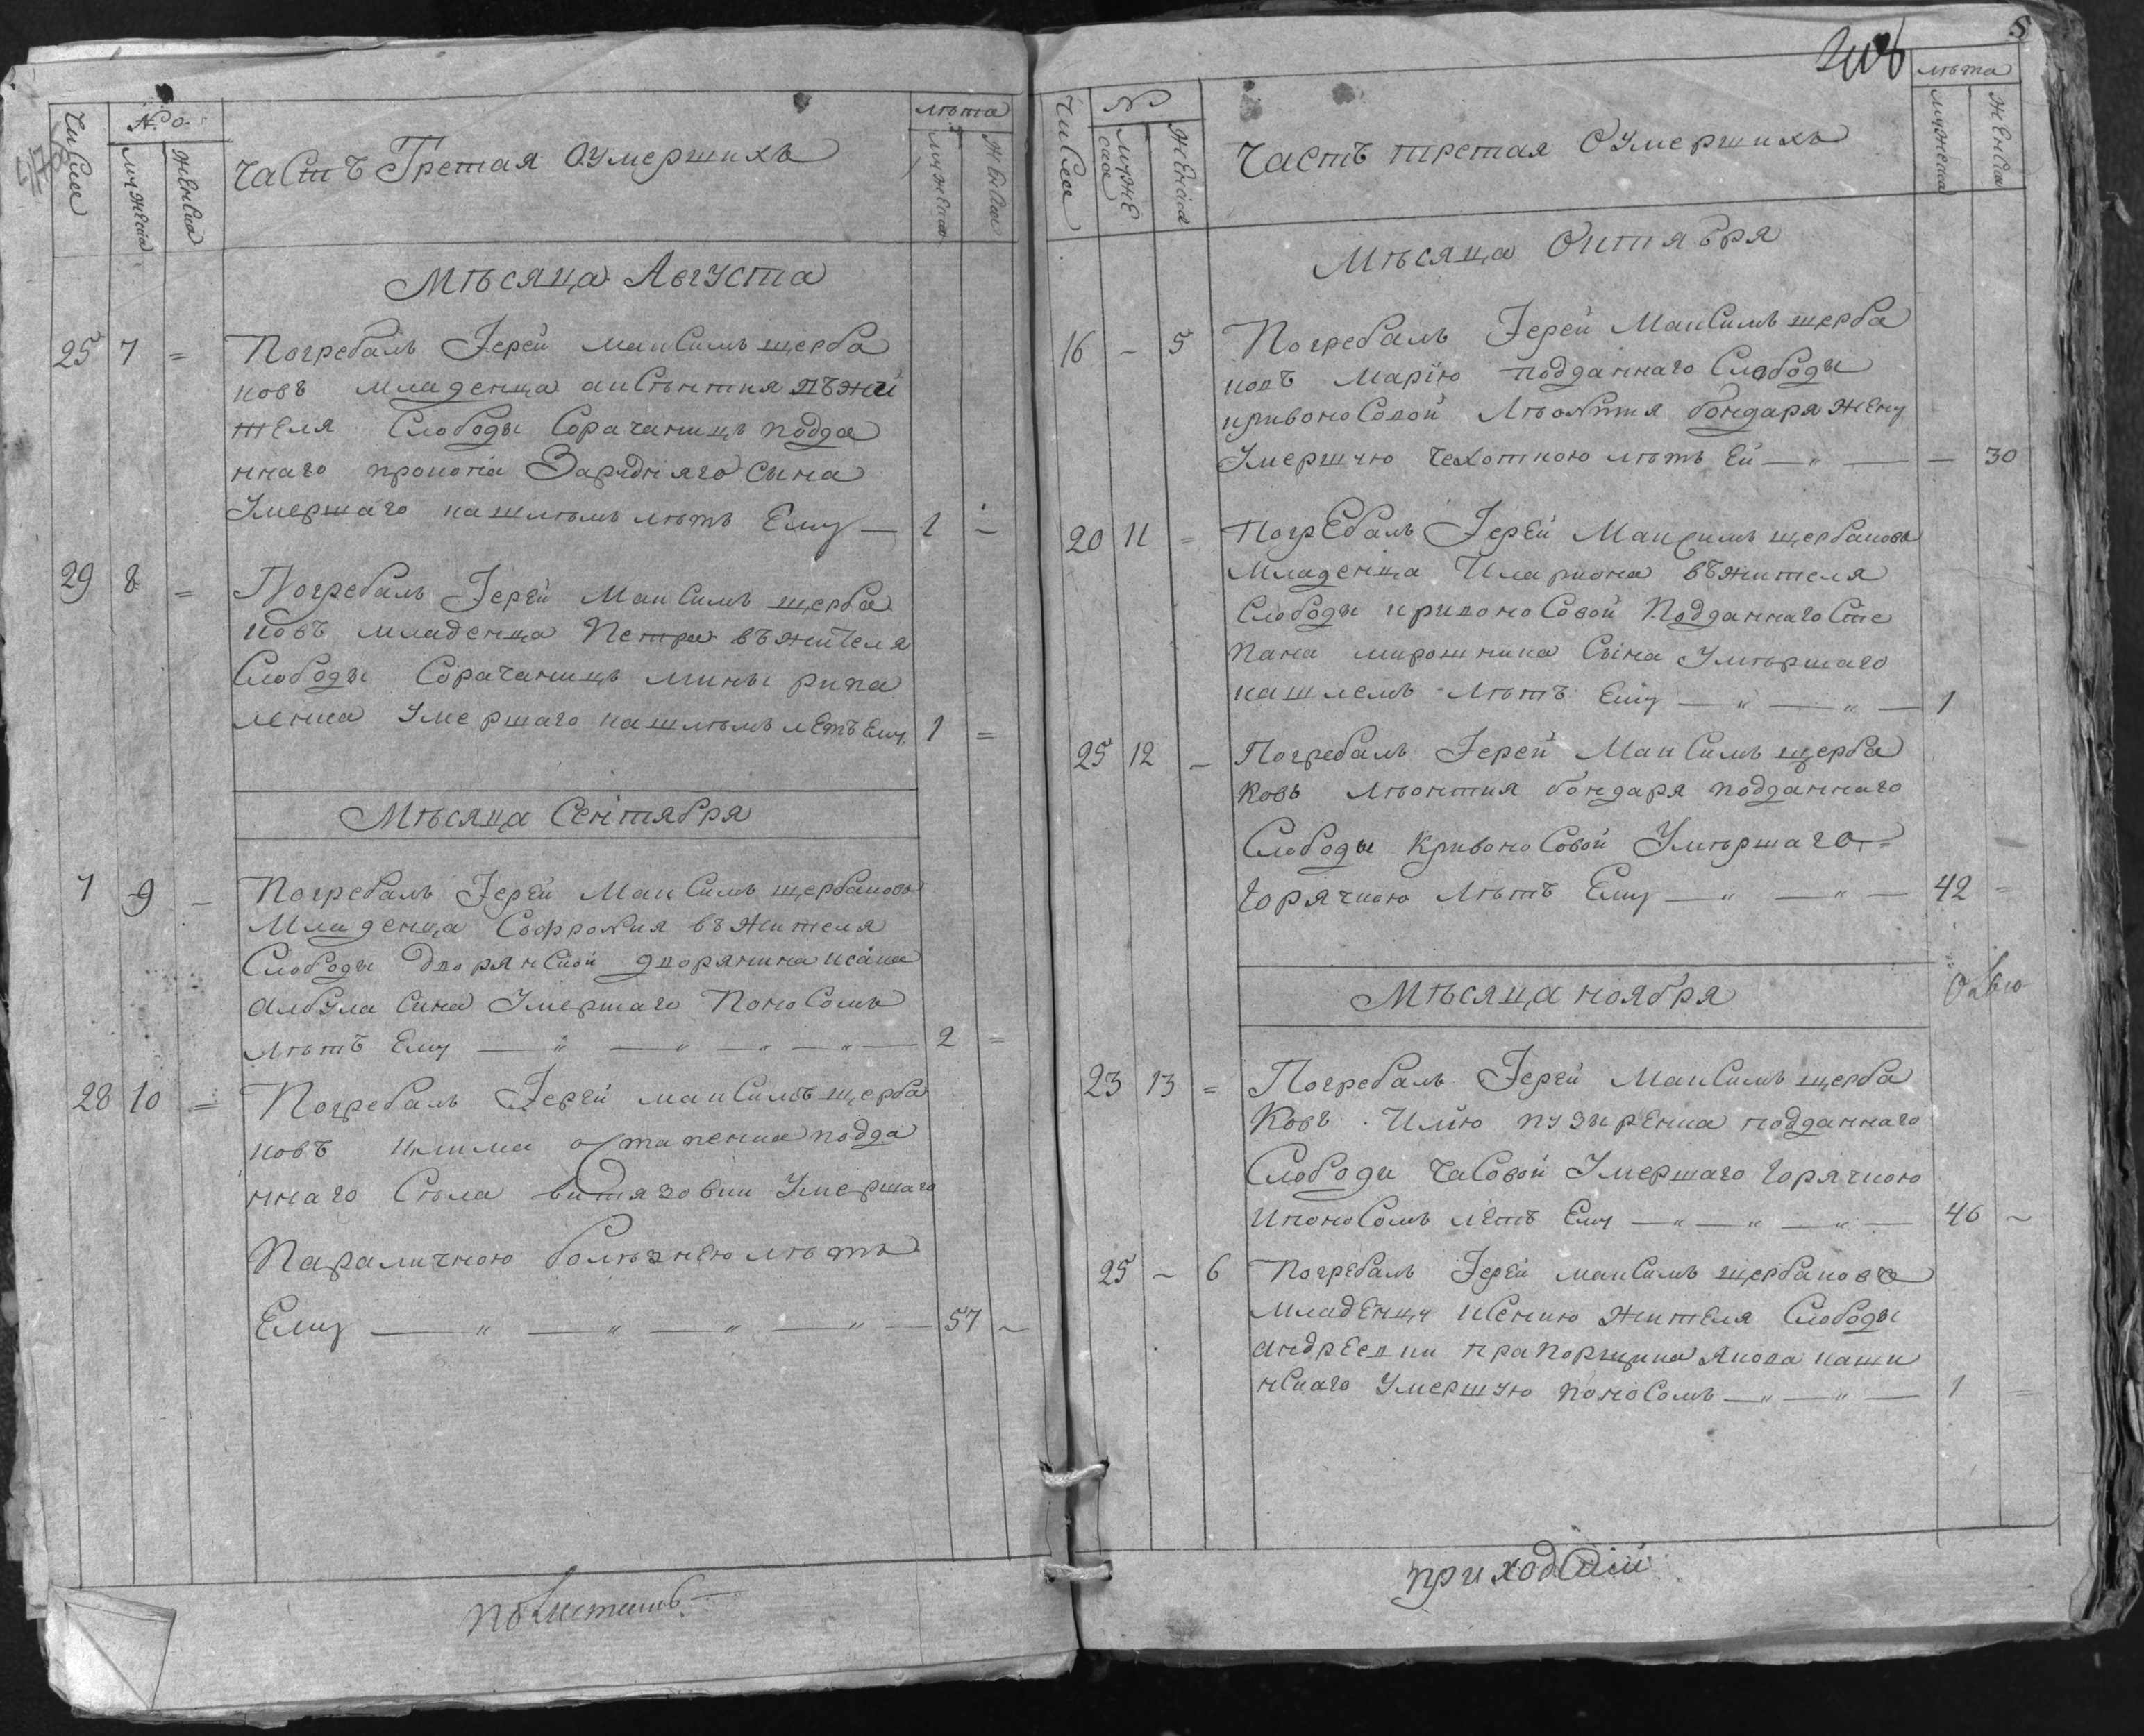 Числа
№
мужеска
женска
Часть Третая Оумершихъ
лѣта
мужеска
женска
Мѣсяца Августа
25 7 =
Погребалъ Іерей Максимъ щерба
ковъ младенца
теля Слободы Сорачаницъ подда
ннаго прокопіа Зарудняго сына
Умершаго кашлѣмъ лѣтъ Ему — 1 —
29 8 =
Погребалъ Іерей Максимъ щерба
ковъ младенца Петра въ жителя
Слободы Сорачаницъ мины рипа
ленка Умершаго кашлѣмъ лѣтъ Ему 1 =
Мѣсяца Сентября
7 9 —
Погребалъ Іерей Максимъ щербаковъ
Младенца Софронія въ жителя
Слободы дворянской дворянина исака
албула сина Умершаго Поносомъ
Лѣтъ Ему — " — " — " — " — 2 =
28 10 =
Погребалъ Іерей максимъ щерба
ковъ клима остапенка подда
ннаго Сѣла витязовки Умершаго
Параличною болѣзнею лѣтъ
Ему — " — " — " — " — 57 ~
полистамъ
5
Числа
№
муже
ска
женска
Часть третая Оумершихъ
лѣта
мужеска
женска
Мѣсяца Октября
16 — 5
Погребалъ Іерей Максимъ щерба
ковъ марію подданнаго Слободы
кривоносовой Лѣонтія бондаря жену
Умершую чехоткою лѣтъ Ей — " — — 30
20 11 =
Погребалъ Іерей Максимъ щербаковъ
Младенца Илариона въ жителя
Слободы кривоносовой Подданнаго Сте
пана мирошника Сына Умѣршаго
кашлемъ лѣтъ Ему — " — " — 1
25 12 —
Погребалъ Іерей Максимъ щерба
ковъ лѣонтия бондаря подданнаго
Слободы кривоносовой Умѣршаго
Горячкою Лѣтъ Ему — " — " — 42 =
Мѣсяца ноября
23 13 =
Погребалъ Іерей Максимъ щерба
Ковъ Илію пузыренка подданнаго
Слободы часовой Умершаго Горячкою
Ипоносомъ лѣтъ Ему — " — " — " — 46 ~
25 ~ 6
Погребалъ Іерей максимъ щербаковъ
младенцу ксению жителя Слободы
андреевки прапорщика якова
нскаго Умершую поносомъ — " — " — 1 =
приходскій